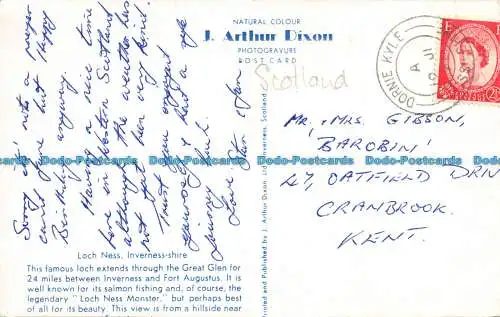 NATURAL COLOUR
J. Arthur Dixon
PHOTOGRAVURE
POST CARD
Scotland
DORNIE KYLE
Sorry it's not a proper
card Jane but Happy
Birthday anyway.
Having a nice time
here in Western Scotland
although the weather has
not yet been very kind.
Trust you enjoyed
yourself & had a safe
journey
Love
MR. & MRS. GIBSON,
"BAROBIN"
27, OATFIELD DRIV
CRANBROOK,
KENT.
Loch Ness, Inverness-shire
This famous loch extends through the Great Glen for
24 miles between Inverness and Fort Augustus. It is
well known for its salmon fishing and, of course, the
legendary "Loch Ness Monster," but perhaps best
of all for its beauty. This view is from a hillside near
Printed and Published by J. Arthur Dixon Ltd., Inverness, Scotland
Bodo-Postcards Bodo-Postcards Bodo-Postcards Bodo-Postcards Bodo-Postcards